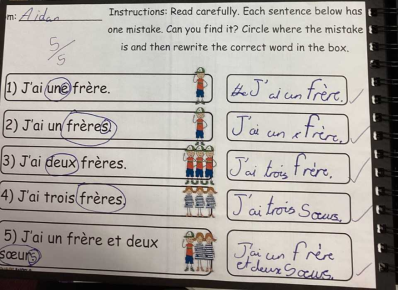 m: Aidan
Instructions: Read carefully. Each sentence below has
one mistake. Can you find it? Circle where the mistake
is and then rewrite the correct word in the box.
5/5
1) J'ai une frère.
J'ai un frère.
2) J'ai un frères.
J'ai un frère.
3) J'ai deux frères.
J'ai trois frère.
4) J'ai trois frères
J'ai trois Sœurs.
5) J'ai un frère et deux
sœurs
J'ai un frère
et deux Sœurs.